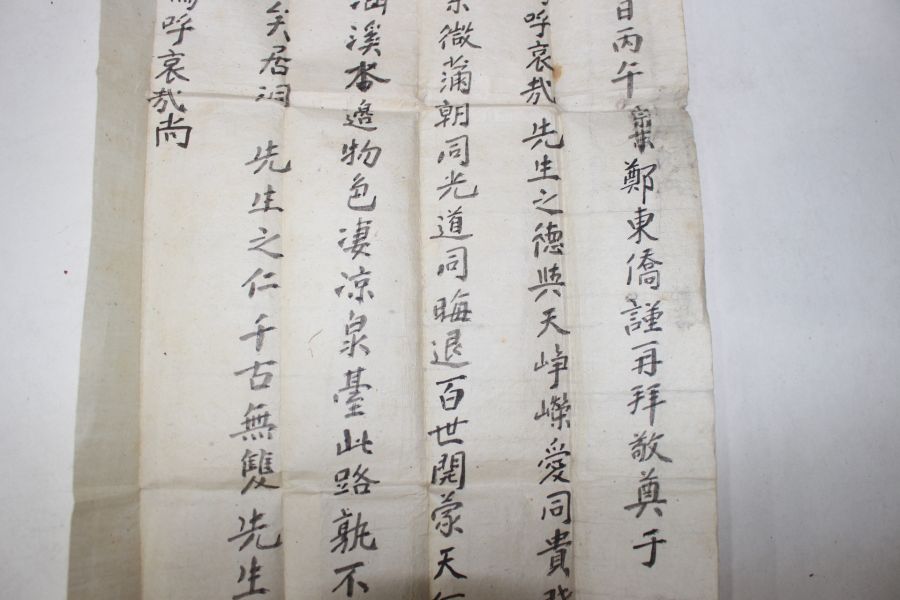 日丙午鄭東僑謹再拜敬奠于
呼哀哉先生之德與天崢嶸愛同貴
微滿朝同光道同晦退百世開蒙天
溪杏邊物色凄凉泉臺此路孰不
矣居泗先生之仁千古無雙先生
呼哀哉尚